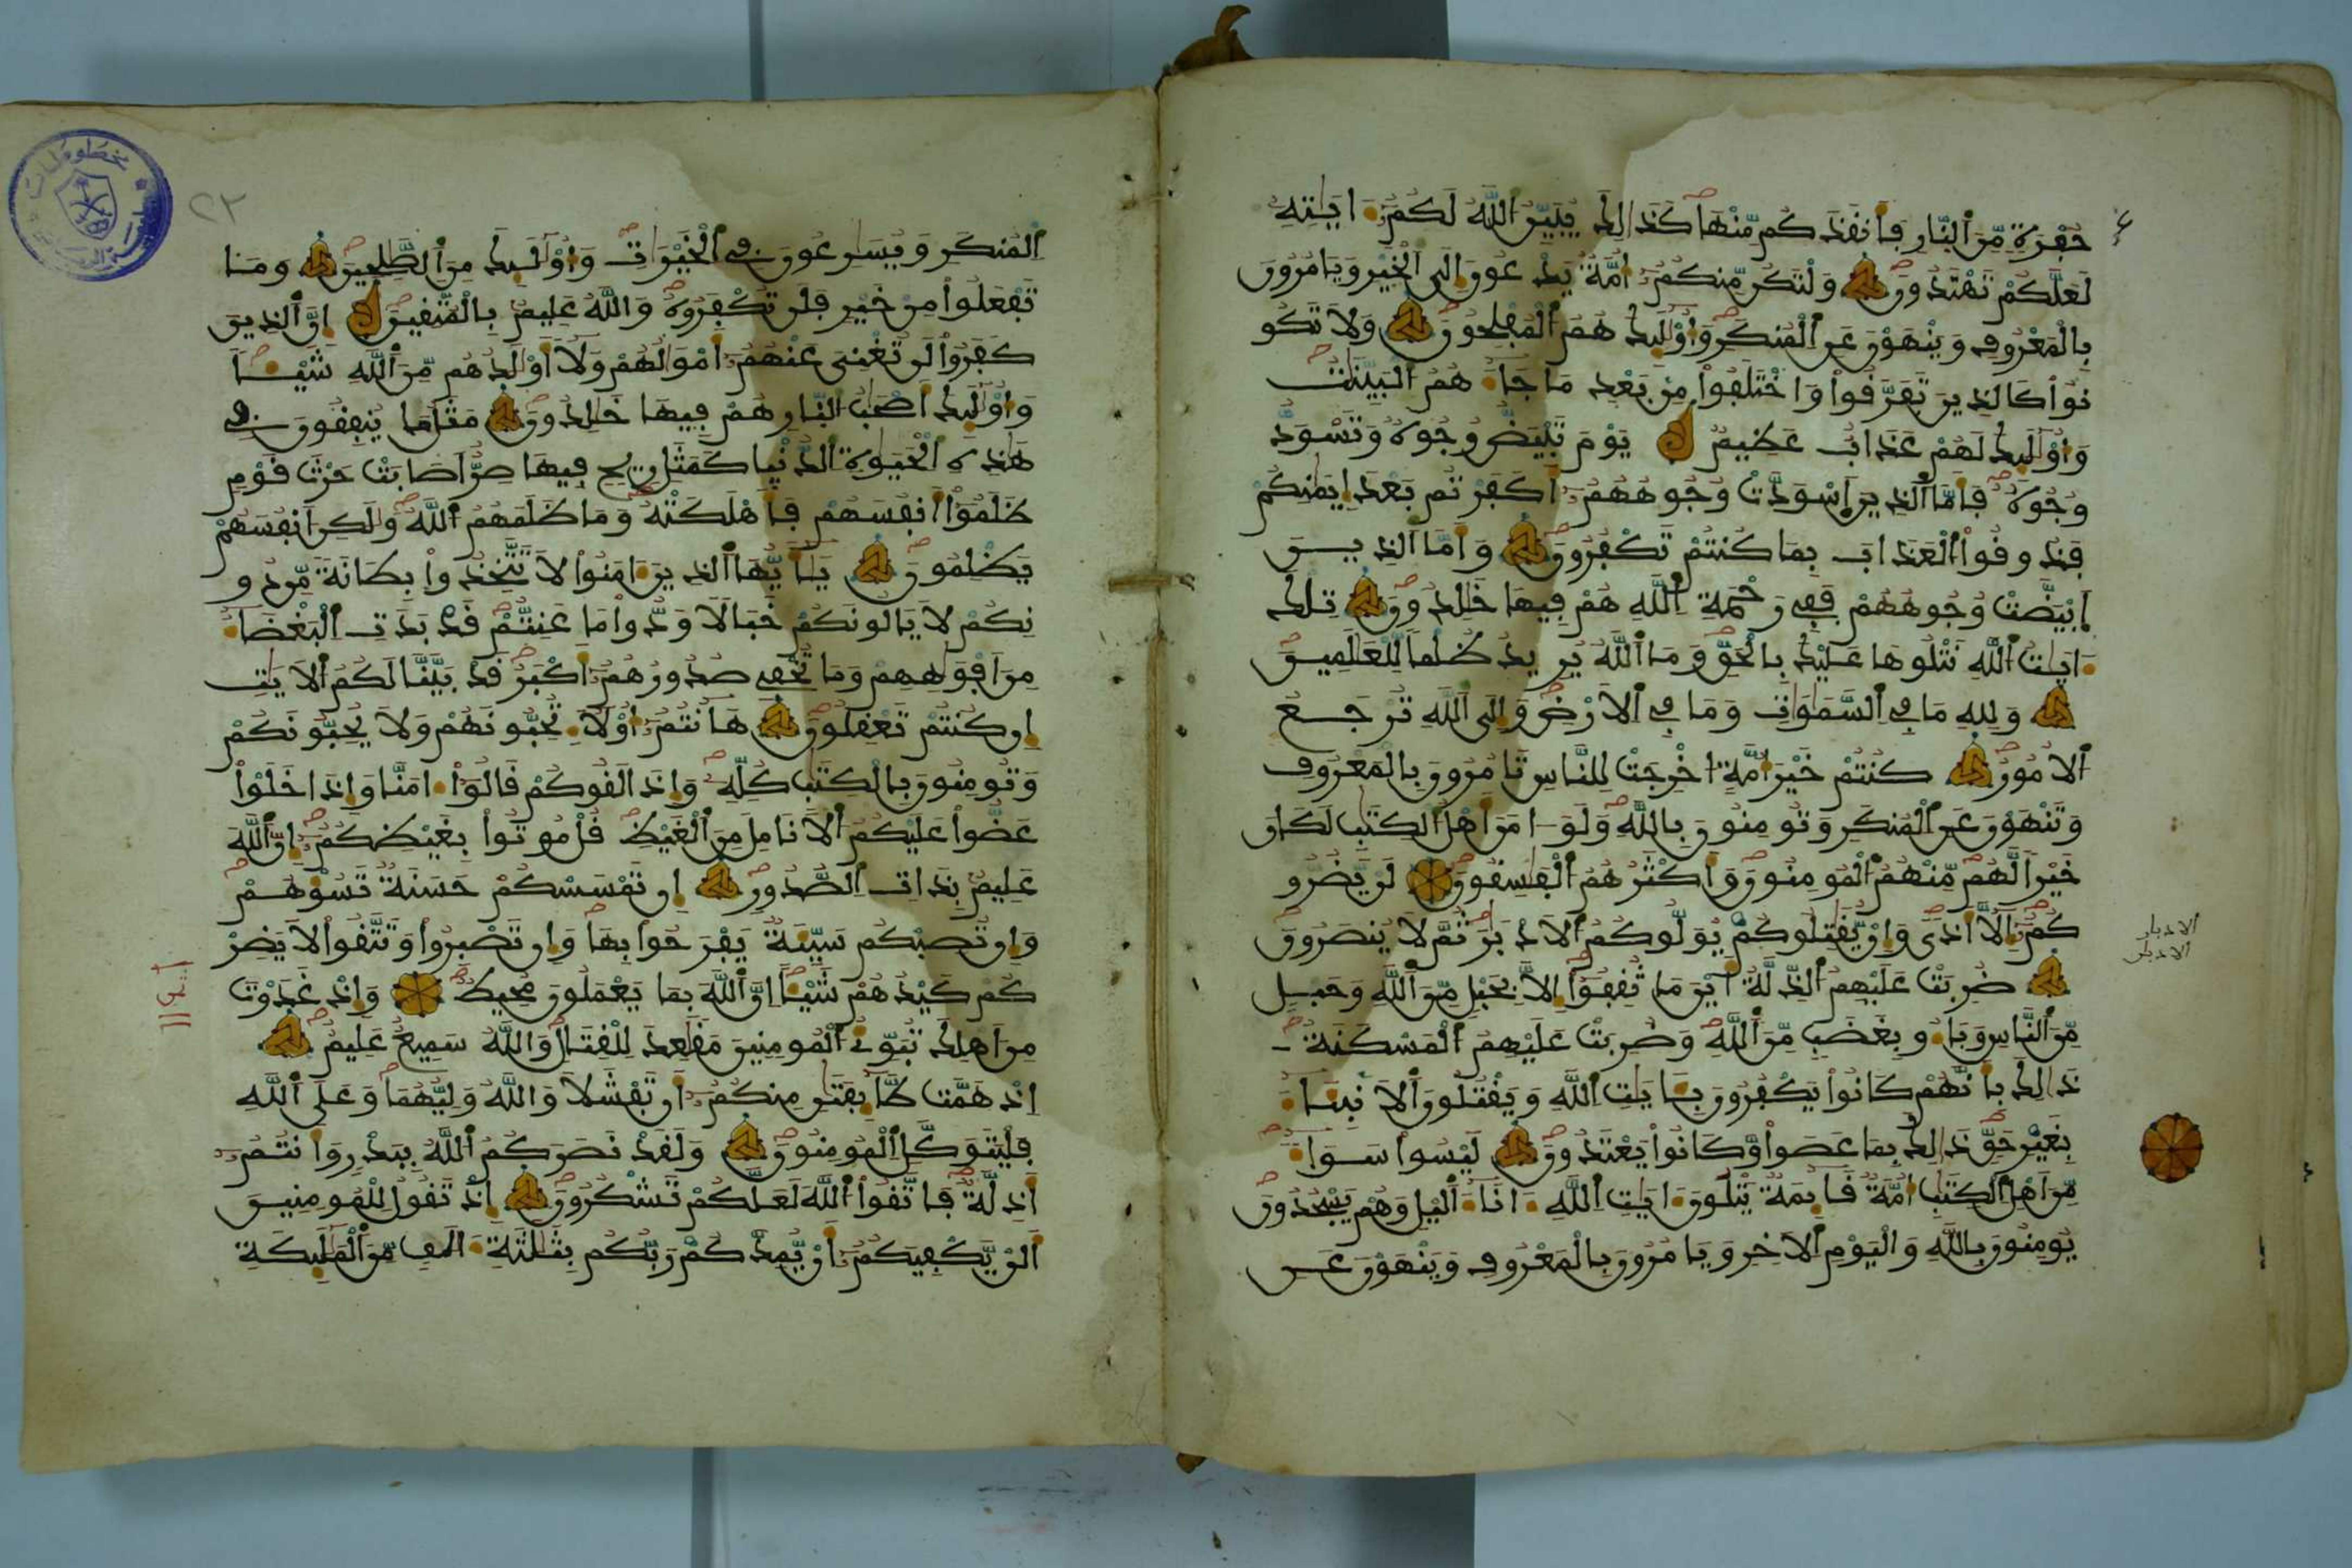 حُفْرَةٖ مِّنَ ٱلنَّارِ فَأَنقَذَكُم مِّنْهَا كَذَٰلِكَ يُبَيِّنُ ٱللَّهُ لَكُمُۥٓ ءَايَٰتِهِۦ
لَعَلَّكُمْ تَهْتَدُونَ وَلْتَكُن مِّنكُمُۥٓ أُمَّةٞ يَدْعُونَ إِلَى ٱلْخَيْرِ وَيَامُرُونَ
بِالْمَعْرُوفِ وَيَنْهَوْنَ عَنِ ٱلْمُنكَرِ وَأُوْلَٰٓئِكَ هُمُ ٱلْمُفْلِحُونَ وَلَا تَكُو
نُواْ كَالذِينَ تَفَرَّقُواْ وَاخْتَلَفُواْ مِنۢ بَعْدِ مَا جَآءَهُمُ ٱلْبَيِّنَٰتُ
وَأُوْلَٰٓئِكَ لَهُمْ عَذَابٌ عَظِيمٞ يَوْمَ تَبْيَضُّ وُجُوهٞ وَتَسْوَدُّ
وُجُوهٞ فَأَمَّا ٱلذِينَ ٱسْوَدَّتْ وُجُوهُهُمُۥٓ أَكَفَرْتُم بَعْدَ إِيمَٰنِكُمْ
فَذُوقُواْ ٱلْعَذَابَ بِمَا كُنتُمْ تَكْفُرُونَ وَأَمَّا ٱلذِينَ
ٱبْيَضَّتْ وُجُوهُهُمْ فَفِي رَحْمَةِ ٱللَّهِ هُمْ فِيهَا خَٰلِدُونَ تِلْكَ
ءَايَٰتُ ٱللَّهِ نَتْلُوهَا عَلَيْكَ بِالْحَقِّ وَمَا ٱللَّهُ يُرِيدُ ظُلْماٗ لِّلْعَٰلَمِينَ
وَلِلهِ مَا فِي ٱلسَّمَٰوَٰتِ وَمَا فِي ٱلَارْضِ وَإِلَى ٱللَّهِ تُرْجَعُ
ٱلُامُورُ كُنتُمْ خَيْرَ أُمَّةٍ ٱخْرِجَتْ لِلنَّاسِ تَامُرُونَ بِالْمَعْرُوفِ
وَتَنْهَوْنَ عَنِ ٱلْمُنكَرِ وَتُومِنُونَ بِاللَّهِ وَلَوَ ٱمَنَ أَهْلُ ٱلْكِتَٰبِ لَكَانَ
خَيْراٗ لَّهُم مِّنْهُمُ ٱلْمُومِنُونَ وَأَكْثَرُهُمُ ٱلْفَٰسِقُونَ لَنْ يَّضُرُّو
كُمُۥٓ إِلَّآ أَذٗى وَإِنْ يُّقَٰتِلُوكُمْ يُوَلُّوكُمُ ٱلَادْبَٰرَ ثُمَّ لَا يُنصَرُونَ
ضُرِبَتْ عَلَيْهِمُ ٱلذِّلَّةُ أَيْنَ مَا ثُقِفُوٓاْ إِلَّا بِحَبْلٖ مِّنَ ٱللَّهِ وَحَبْلٖ
مِّنَ ٱلنَّاسِ وَبَآءُو بِغَضَبٖ مِّنَ ٱللَّهِ وَضُرِبَتْ عَلَيْهِمُ ٱلْمَسْكَنَةُ
ذَٰلِكَ بِأَنَّهُمْ كَانُواْ يَكْفُرُونَ بِـَٔايَٰتِ ٱللَّهِ وَيَقْتُلُونَ ٱلَانۢبِيَآءَ
بِغَيْرِ حَقّٖ ذَٰلِكَ بِمَا عَصَواْ وَّكَانُواْ يَعْتَدُونَ لَيْسُواْ سَوَآءٗ
مِّنَ أَهْلِ ٱلْكِتَٰبِ أُمَّةٞ قَآئِمَةٞ يَتْلُونَ ءَايَٰتِ ٱللَّهِ ءَانَآءَ ٱلَيْلِ وَهُمْ يَسْجُدُونَ
يُومِنُونَ بِاللَّهِ وَالْيَوْمِ ٱلَاخِرِ وَيَامُرُونَ بِالْمَعْرُوفِ وَيَنْهَوْنَ عَنِ
الادبار
الادبار
٢٣
ٱلْمُنكَرِ وَيُسَٰرِعُونَ فِي ٱلْخَيْرَٰتِ وَأُوْلَٰٓئِكَ مِنَ ٱلصَّٰلِحِينَ وَمَا
تَفْعَلُواْ مِنْ خَيْرٖ فَلَن تُكْفَرُوهُ وَاللَّهُ عَلِيمُۢ بِالْمُتَّقِينَ إِنَّ ٱلذِينَ
كَفَرُواْ لَن تُغْنِيَ عَنْهُمُۥٓ أَمْوَٰلُهُمْ وَلَآ أَوْلَٰدُهُم مِّنَ ٱللَّهِ شَيْـٔاٗ
وَأُوْلَٰٓئِكَ أَصْحَٰبُ ٱلنَّارِ هُمْ فِيهَا خَٰلِدُونَ مَثَلُ مَا يُنفِقُونَ فِي
هَٰذِهِ ٱلْحَيَوٰةِ ٱلدُّنْيَا كَمَثَلِ رِيحٖ فِيهَا صِرٌّ أَصَابَتْ حَرْثَ قَوْمٖ
ظَلَمُوٓاْ أَنفُسَهُمْ فَأَهْلَكَتْهُ وَمَا ظَلَمَهُمُ ٱللَّهُ وَلَٰكِنَ أَنفُسَهُمْ
يَظْلِمُونَ يَٰٓأَيُّهَا ٱلذِينَ ءَامَنُواْ لَا تَتَّخِذُواْ بِطَانَةٗ مِّن دُو
نِكُمْ لَا يَالُونَكُمْ خَبَالٗا وَدُّواْ مَا عَنِتُّمْ قَدْ بَدَتِ ٱلْبَغْضَآءُ
مِنَ أَفْوَٰهِهِمْ وَمَا تُخْفِي صُدُورُهُمُۥٓ أَكْبَرُ قَدْ بَيَّنَّا لَكُمُ ٱلَايَٰتِ
إِن كُنتُمْ تَعْقِلُونَ هَآنتُمُۥٓ أُوْلَآءِ تُحِبُّونَهُمْ وَلَا يُحِبُّونَكُمْ
وَتُومِنُونَ بِالْكِتَٰبِ كُلِّهِۦ وَإِذَا لَقُوكُمْ قَالُوٓاْ ءَامَنَّا وَإِذَا خَلَوْاْ
عَضُّواْ عَلَيْكُمُ ٱلَانَامِلَ مِنَ ٱلْغَيْظِ قُلْ مُوتُواْ بِغَيْظِكُمُۥٓ إِنَّ ٱللَّهَ
عَلِيمُۢ بِذَاتِ ٱلصُّدُورِ إِن تَمْسَسْكُمْ حَسَنَةٞ تَسُؤْهُمْ
وَإِن تُصِبْكُمْ سَيِّئَةٞ يَفْرَحُواْ بِهَا وَإِن تَصْبِرُواْ وَتَتَّقُواْ لَا يَضِرْ
كُمْ كَيْدُهُمْ شَيْـٔاً إِنَّ ٱللَّهَ بِمَا يَعْمَلُونَ مُحِيطٞ وَإِذْ غَدَوْتَ
مِنَ أَهْلِكَ تُبَوِّئُ ٱلْمُومِنِينَ مَقَٰعِدَ لِلْقِتَالِ وَاللَّهُ سَمِيعٌ عَلِيمٌ
إِذْ هَمَّت طَّآئِفَتَٰنِ مِنكُمُۥٓ أَن تَفْشَلَا وَاللَّهُ وَلِيُّهُمَا وَعَلَى ٱللَّهِ
فَلْيَتَوَكَّلِ ٱلْمُومِنُونَ وَلَقَدْ نَصَرَكُمُ ٱللَّهُ بِبَدْرٖ وَأَنتُمُۥٓ
أَذِلَّةٞ فَاتَّقُواْ ٱللَّهَ لَعَلَّكُمْ تَشْكُرُونَ إِذْ تَقُولُ لِلْمُومِنِينَ
أَلَنْ يَّكْفِيَكُمُۥٓ أَنْ يُّمِدَّكُمْ رَبُّكُم بِثَلَٰثَةِ ءَالَٰفٖ مِّنَ ٱلْمَلَٰٓئِكَةِ